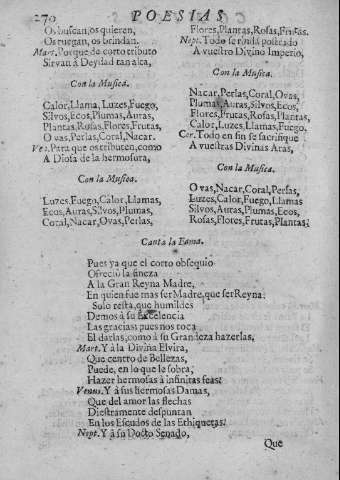 270 POESIAS
Os buscan, os quieren,
Os ruegan, os brindan.
Mart. Porque de corto tributo
Sirvan à Deydad tan alta,
Con la Musica.
Calor, Llama, Luzes, Fuego,
Silvos, Ecos, Plumas, Auras,
Plantas, Rosas, Flores, Frutas,
Ovas, Perlas, Coral, Nacar.
Ve. Para que os tributen, como
A Diosa de la hermosura,
Con la Musica.
Luzes, Fuego, Calor, Llamas,
Ecos, Auras, Silvos, Plumas,
Coral, Nacar, Ovas, Perlas,
Flores, Plantas, Rosas, Frutas.
Nept. Todo se rinda postrado
A vuestro Divino Imperio,
Con la Musica.
Nacar, Perlas, Coral, Ovas,
Plumas, Auras, Silvos, Ecos,
Flores, Frutas, Rosas, Plantas,
Calor, Luzes, Llamas, Fuego.
Cer. Todo en fin se sacrifique
A vuestras Divinas Aras,
Con la Musica.
Ovas, Nacar, Coral, Perlas,
Luzes, Calor, Fuego, Llamas
Silvos, Auras, Plumas, Ecos,
Rosas, Flores, Frutas, Plantas?
Canta la Fama.
Pues ya que el corto obsequio
Ofreciò la fineza
A la Gran Reyna Madre,
En quien fue mas ser Madre, que ser Reyna:
Solo resta, que humildes
Demos à su Excelencia
Las gracias: pues nos toca
El darlas, como à su Grandeza hazerlas,
Mart. Y à la Divina Elvira,
Que centro de Bellezas,
Puede, en lo que le sobra,
Hazer hermosas à infinitas feas:
Venus. Y à sus hermosas Damas,
Que del amor las flechas
Diestramente despuntan
En los Escudos de las Ethiquetas:
Nept. Y à su Docto Senado,
Que